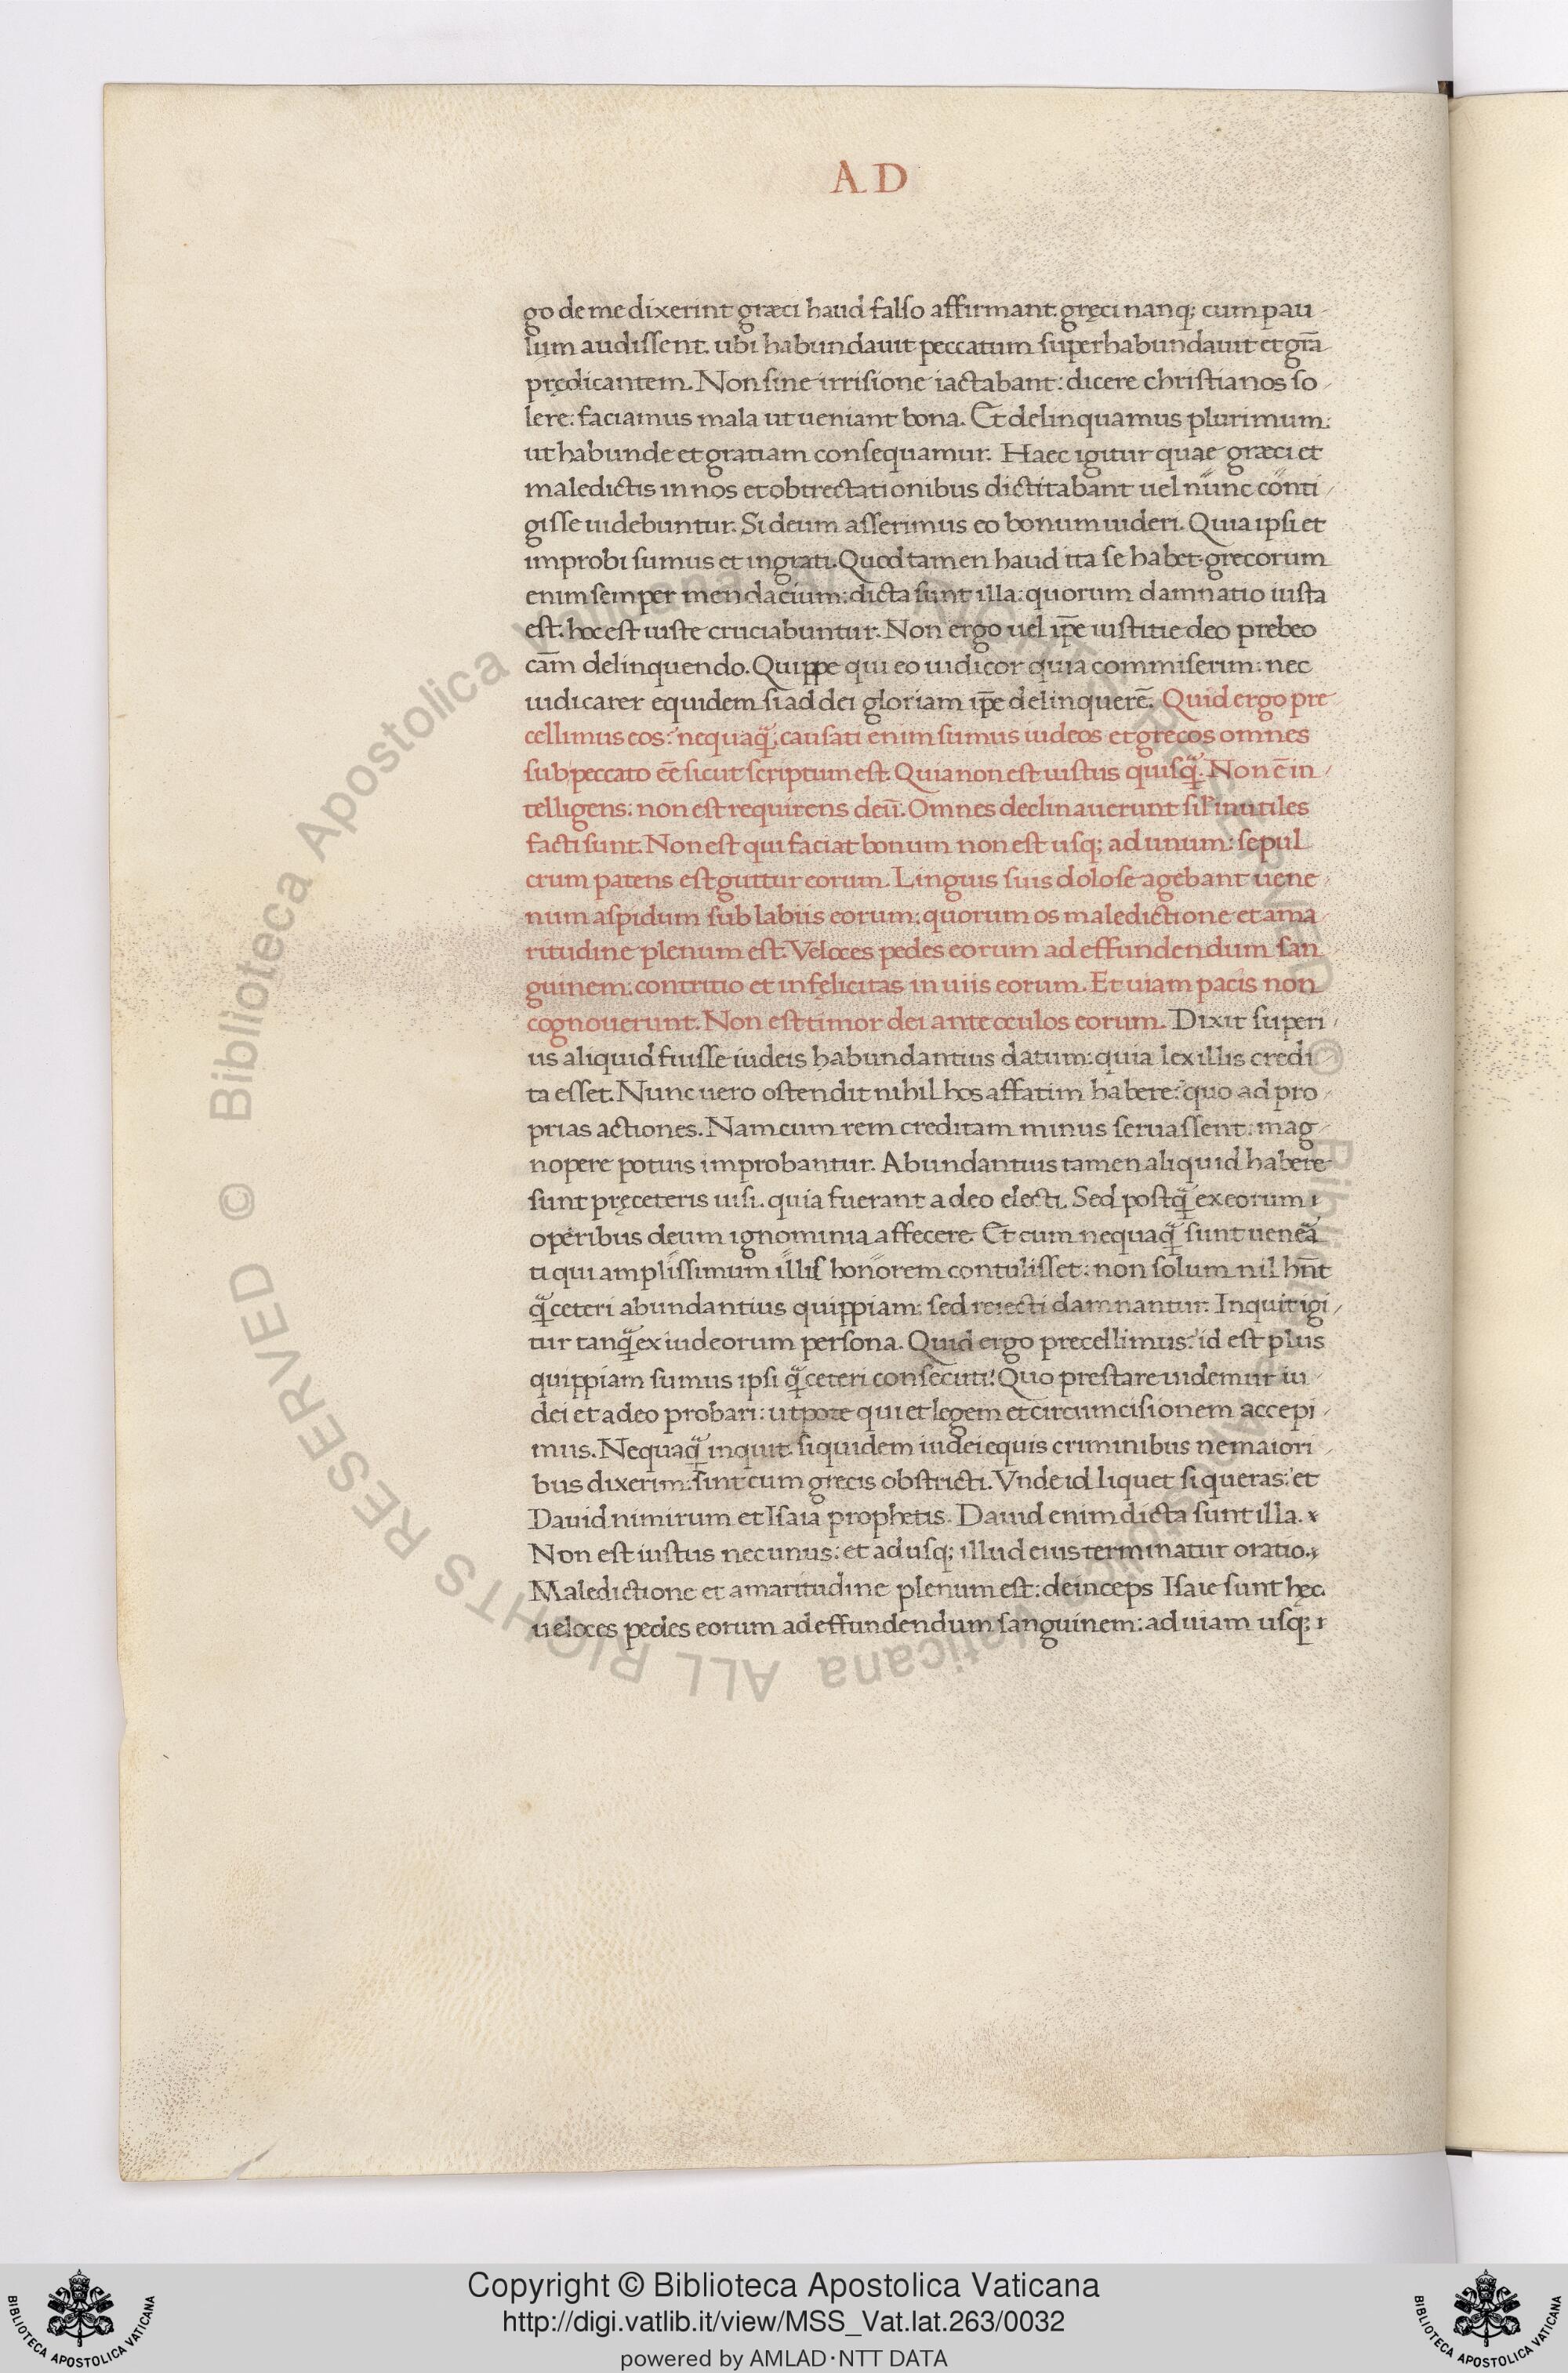 A D
go de me dixerint græci haud falso affirmant. gręci nanq; cum pau
lum audissent. ubi habundauit peccatum superhabundauit et gr̄a
prędicantem. Non sine irrisione iactabant: dicere christianos so
lere: faciamus mala ut ueniant bona. Et delinquamus plurimum:
ut habunde et gratiam consequamur. Haec igitur quae græci et
maledictis in nos et obtrectationibus dictitabant uel nunc conti
gisse uidebuntur. Si deum asserimus eo bonum uideri. Quia ipsi et
improbi sumus et ingrati. Quod tamen haud ita se habet. grecorum
enim semper mendacium: dicta sunt illa: quorum damnatio iusta
est: hoc est iuste cruciabuntur. Non ergo uel ip̄e iustitie deo prebeo
cām delinquendo. Quippe qui eo iudicor quia commiserim: nec
iudicarer equidem si ad dei gloriam ip̄e delinquerē. Quid ergo pre
cellimus eos: nequaq̄; causati enim sumus iudeos et grecos omnes
sub peccato eē sicut scriptum est. Quia non est iustus quisq̄. Non ē in
telligens: non est requirens deū. Omnes declinauerunt sil' inutiles
facti sunt. Non est qui faciat bonum non est usq; ad unum: sepul
crum patens est guttur eorum. Linguis suis dolose agebant uene
num aspidum sub labiis eorum: quorum os maledictione et ama
ritudine plenum est. Veloces pedes eorum ad effundendum san
guinem: contritio et infęlicitas in uiis eorum. Et uiam pacis non
cognouerunt. Non est timor dei ante oculos eorum. Dixit superi
us aliquid fuisse iudeis habundantius datum: quia lex illis credi
ta esset. Nunc uero ostendit nihil hos affatim habere: quo ad pro
prias actiones. Nam cum rem creditam minus seruassent: mag
nopere potuis improbantur. Abundantius tamen aliquid habere
sunt pręceteris uisi. quia fuerant a deo electi. Sed postq̄ ex eorum
operibus deum ignominia affecere. Et cum nequaq̄ sunt uenera
ti qui amplissimum illis honorem contulisset: non solum nil hn̄t
q̄ ceteri abundantius quippiam: sed reiecti damnantur. Inquit igi
tur tanq̄ ex iudeorum persona. Quid ergo precellimus: id est plus
quippiam sumus ipsi q̄ ceteri consecuti! Quo prestare uidemur iu
dei et a deo probari: utpote qui et legem et circumcisionem accepi
mus. Nequaq̄ inquit. siquidem iudei equis criminibus ne maiori
bus dixerim: sint cum grecis obstricti. Vnde id liquet si queras: et
Dauid nimirum et Isaia prophetis. Dauid enim dicta sunt illa.
Non est iustus nec unus: et ad usq; illud eius terminatur oratio.
Maledictione et amaritudine plenum est: deinceps Isaie sunt hęc.
ueloces pedes eorum ad effundendum sanguinem: ad uiam usq;
© Biblioteca Apostolica Vaticana ALL RIGHTS RESERVED
Copyright © Biblioteca Apostolica Vaticana
http://digi.vatlib.it/view/MSS_Vat.lat.263/0032
powered by AMLAD·NTT DATA
BIBLIOTECA APOSTOLICA VATICANA
BIBLIOTECA APOSTOLICA VATICANA